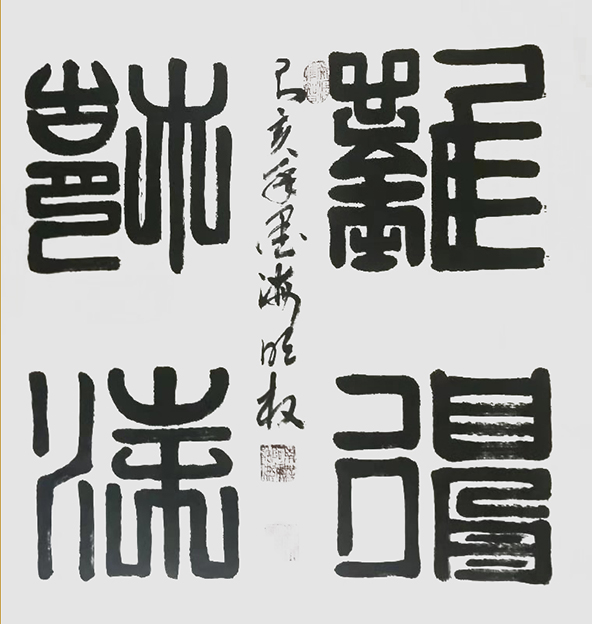 難得
己亥年墨海明权
糊涂